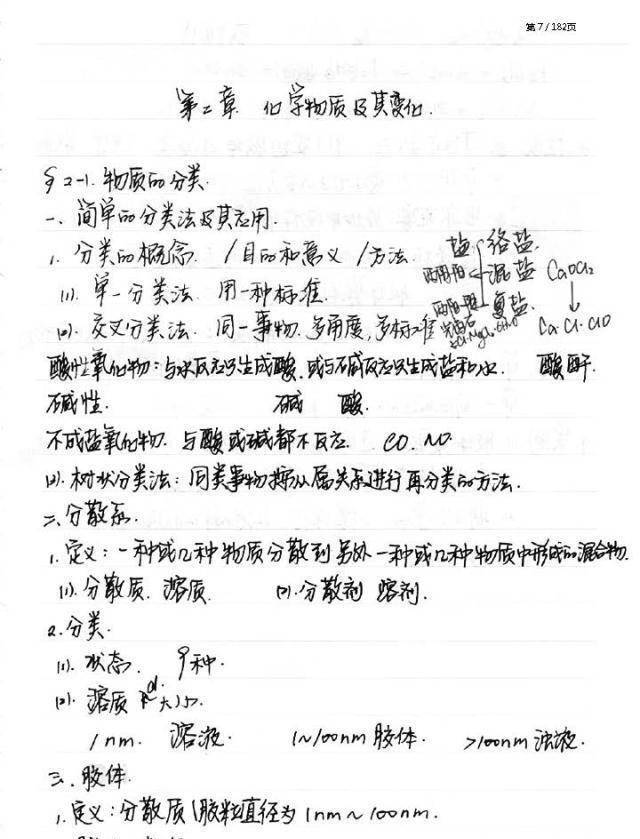 第7/182页
第二章 化学物质及其变化.
§2-1. 物质的分类.
一、简单的分类法及其应用.
1. 分类的概念 / 目的和意义 / 方法
盐 络盐.
两阳一阴 混盐 CaOCl2
复盐.
(1). 单一分类法 用一种标准
(2). 交叉分类法 同一事物.多角度,多标准
KCl·MgCl2·6H2O
Ca·Cl·ClO
酸性氧化物:与水反应只生成酸,或与碱反应只生成盐和水. 酸酐.
碱性. 碱 酸.
不成盐氧化物. 与酸或碱都不反应. CO. NO.
(3). 树状分类法:同类事物按从属关系进行再分类的方法.
二.分散系.
1. 定义:一种或几种物质分散到另外一种或几种物质中形成的混合物.
(1). 分散质. 溶质. (2). 分散剂 溶剂.
2.分类.
(1). 状态. 9种.
(2). 溶质 大小.
1nm. 溶液. 1~100nm 胶体. >100nm 浊液.
三.胶体.
1. 定义:分散质(胶粒)直径为1nm~100nm.